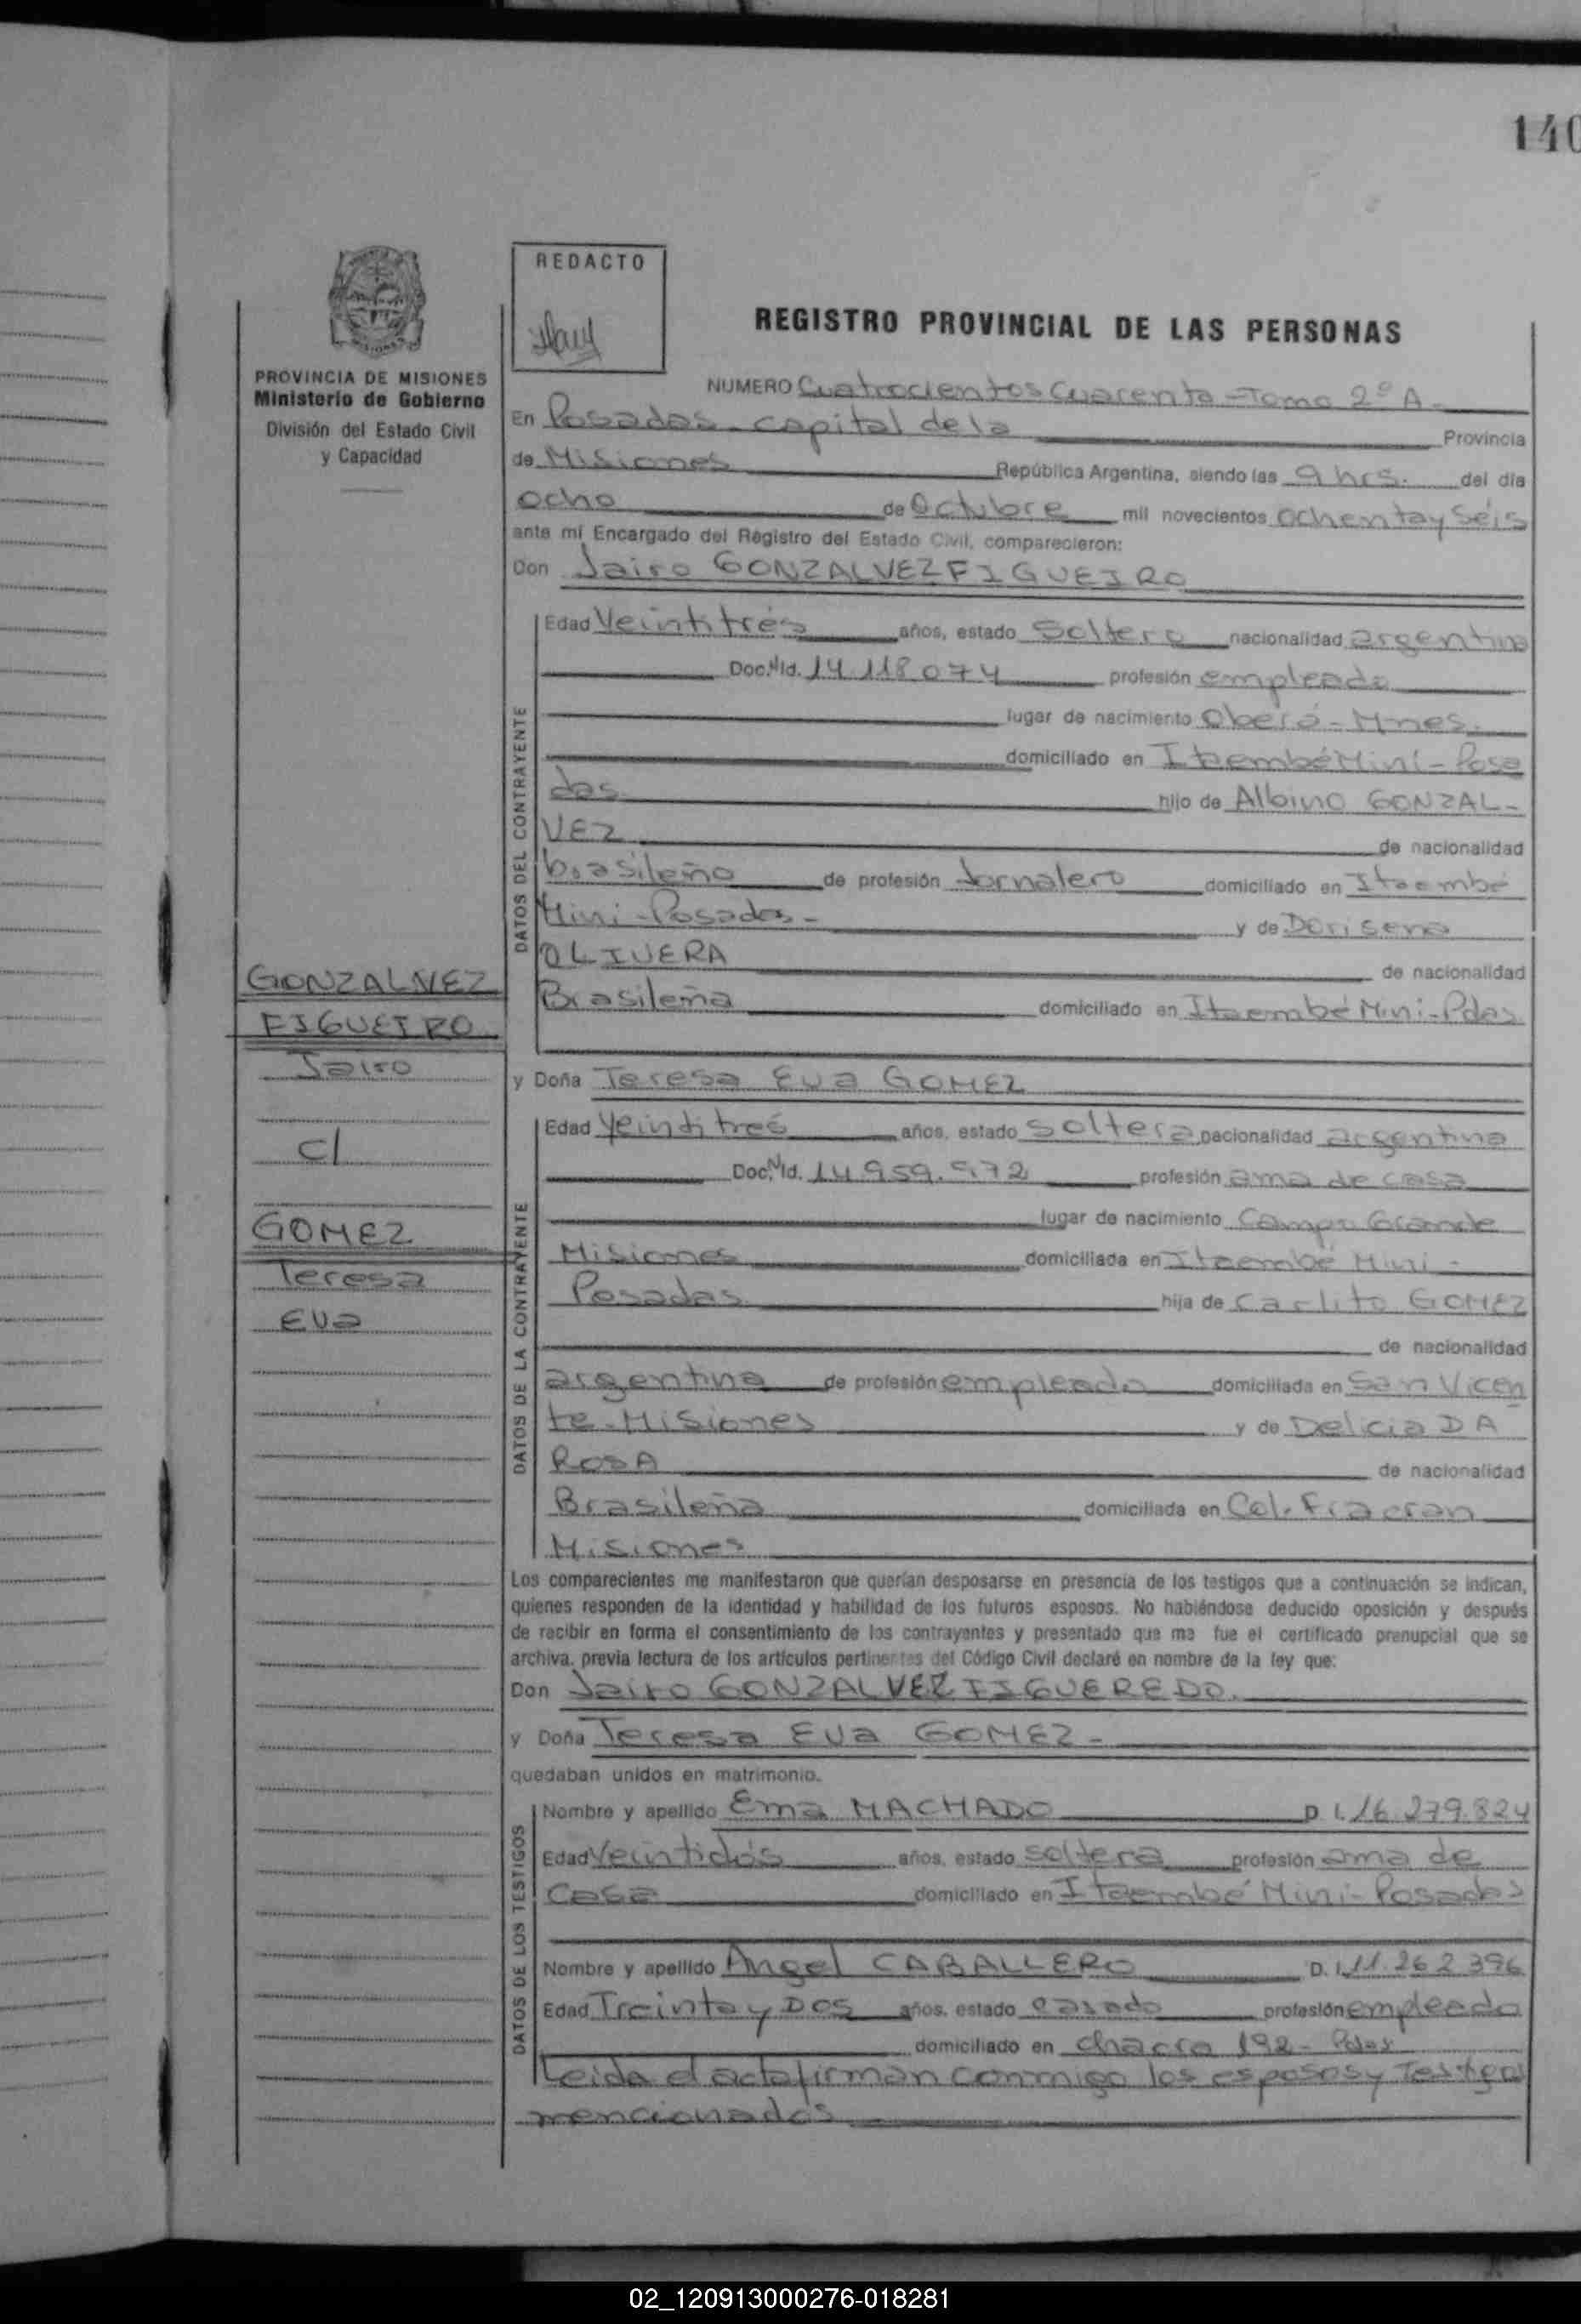 140
REDACTO
REGISTRO PROVINCIAL DE LAS PERSONAS
PROVINCIA DE MISIONES
Ministerio de Gobierno
División del Estado Civil
y Capacidad
NUMERO Cuatrocientos Cuarenta - Tomo 2º A-
En Posadas - capital de la Provincia
de Misiones República Argentina, siendo las 9 hrs. del día
ocho de Octubre mil novecientos ochenta y Séis
ante mí Encargado del Registro del Estado Civil, comparecieron:
Don Jairo GONZALVEZ FIGUEIRO
DATOS DEL CONTRAYENTE
Edad Veintitrés años, estado Soltero nacionalidad argentina
Doc. N Id. 14.118.074 profesión empleado
lugar de nacimiento Oberá - Mnes.
domiciliado en Itaembé Miní - Posa
das hijo de Albino GONZAL-
VEZ de nacionalidad
brasileño de profesión Jornalero domiciliado en Itaembé
Mini - Posadas - y de Dorisena
OLIVERA de nacionalidad
Brasileña domiciliado en Itaembé Mini - Pdas
GONZALVEZ
FIGUEIRO
Jairo
c/
GOMEZ
Teresa
Eva
y Doña Teresa Eva GOMEZ
DATOS DE LA CONTRAYENTE
Edad Veintitrés años, estado Soltera nacionalidad argentina
Doc. N Id. 14.959.972 profesión ama de casa
lugar de nacimiento Campo Grande
Misiones domiciliada en Itaembé Mini -
Posadas hija de Carlito GOMEZ
de nacionalidad
argentina de profesión empleado domiciliada en San Vicen
te - Misiones y de Delicia DA
ROSA de nacionalidad
Brasileña domiciliada en Col. Fracran
Misiones
Los comparecientes me manifestaron que querían desposarse en presencia de los testigos que a continuación se indican,
quienes responden de la identidad y habilidad de los futuros esposos. No habiéndose deducido oposición y después
de recibir en forma el consentimiento de los contrayentes y presentado que me fue el certificado prenupcial que se
archiva, previa lectura de los artículos pertinentes del Código Civil declaré en nombre de la ley que:
Don Jairo GONZALVEZ FIGUEREDO.
y Doña Teresa Eva GOMEZ -
quedaban unidos en matrimonio.
DATOS DE LOS TESTIGOS
Nombre y apellido Ema MACHADO D. I. 16.279.824
Edad Veintidós años, estado soltera profesión ama de
Casa domiciliado en Itaembé Mini - Posadas
Nombre y apellido Angel CABALLERO D. I. 11.262.396
Edad Treinta y Dos años, estado casado profesión empleado
domiciliado en chacra 192 - Pdas
Leida el acta firman conmigo los esposos y Testigos
mencionados
02_120913000276-018281